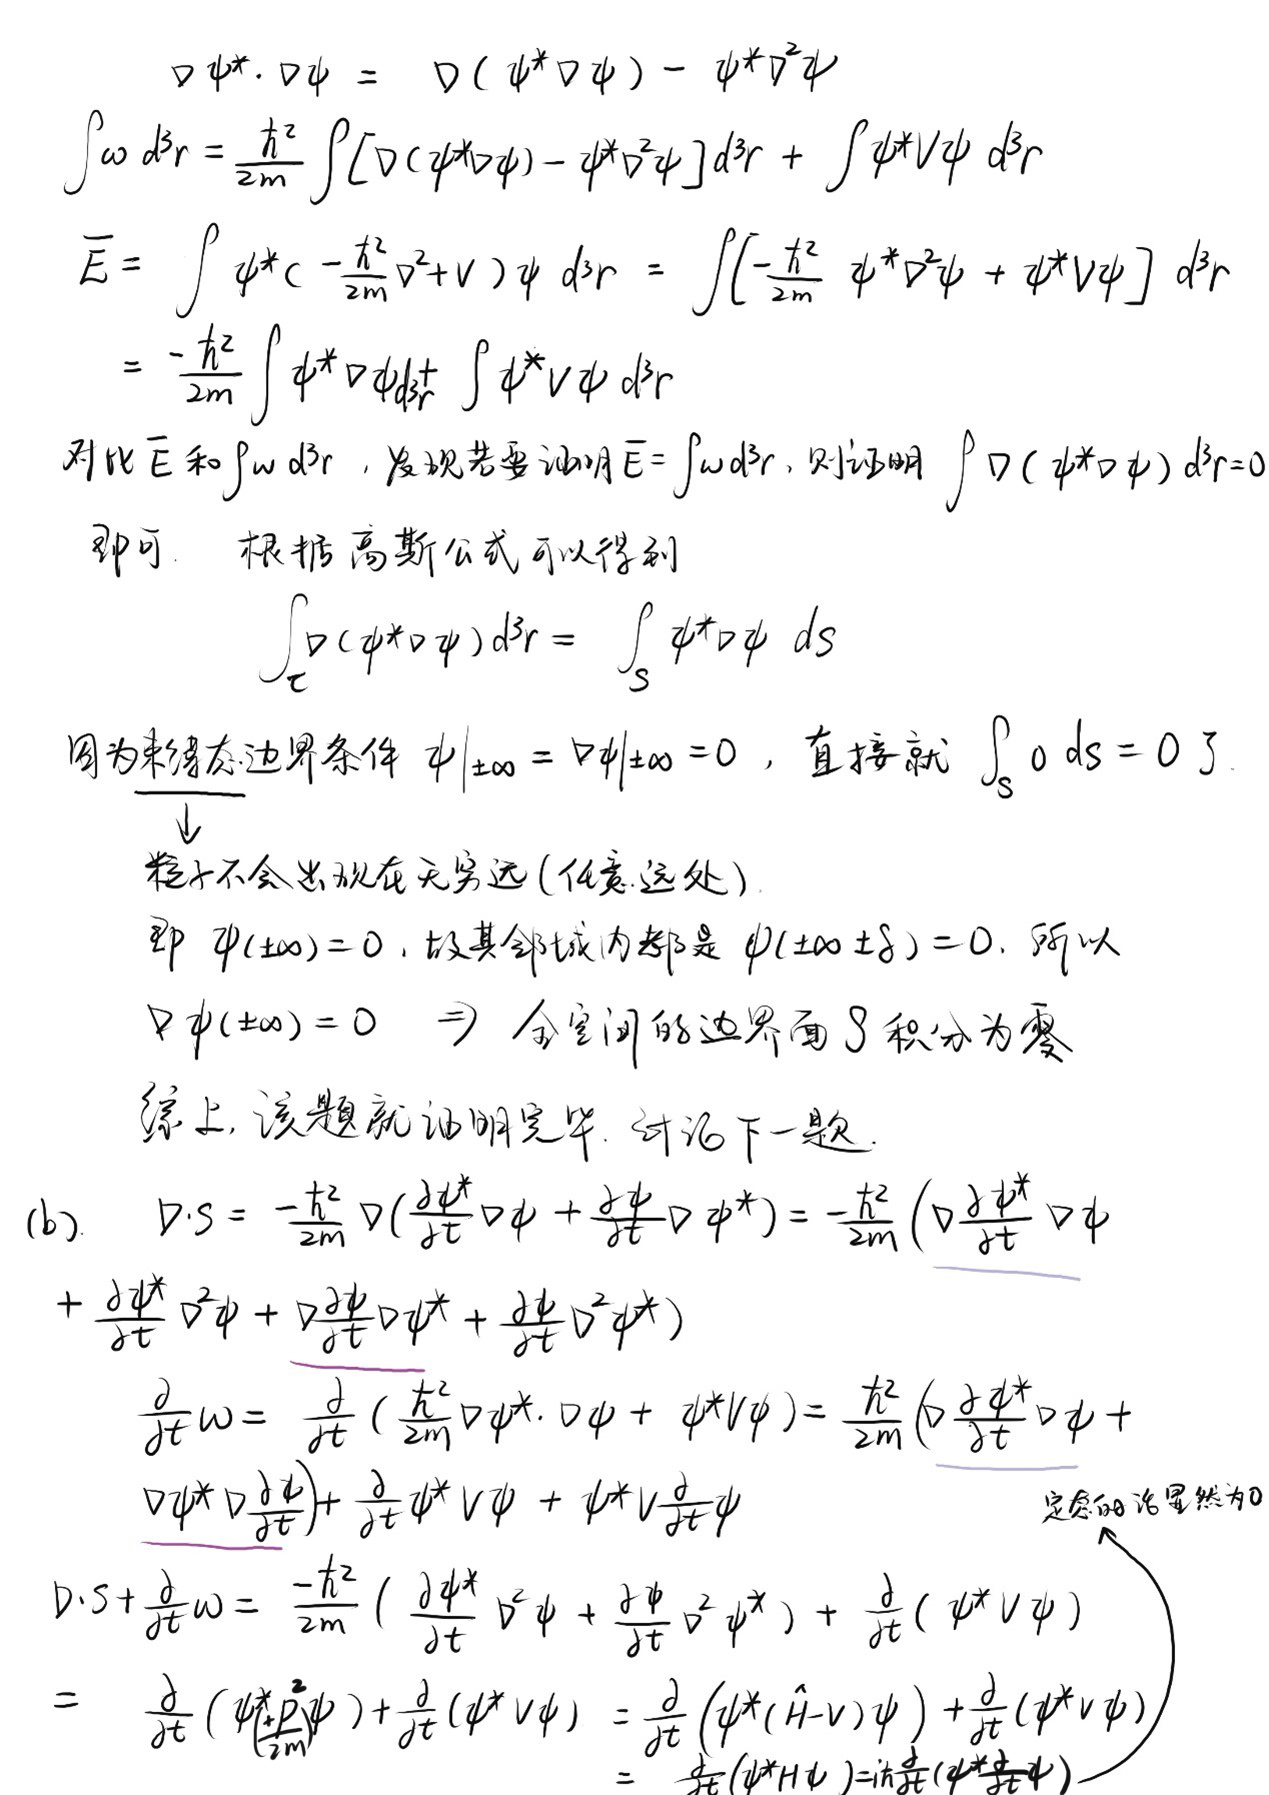 ∇ψ*·∇ψ = ∇(ψ*∇ψ) - ψ*∇²ψ
∫ω d³r = ħ²/2m ∫[∇(ψ*∇ψ) - ψ*∇²ψ]d³r + ∫ψ*Vψ d³r
Ē = ∫ψ*(-ħ²/2m ∇²+V)ψ d³r = ∫[-ħ²/2m ψ*∇²ψ + ψ*Vψ] d³r
= -ħ²/2m ∫ψ*∇ψd³r + ∫ψ*Vψ d³r
对比Ē和∫ωd³r,发现若要证明Ē=∫ωd³r,则证明∫∇(ψ*∇ψ)d³r=0
即可. 根据高斯公式可以得到
∫τ ∇(ψ*∇ψ)d³r = ∫S ψ*∇ψ ds
因为束缚态边界条件 ψ|±∞ = ∇ψ|±∞ = 0, 直接就 ∫S 0 ds = 0了.
↓
粒子不会出现在无穷远(任意远处).
即 ψ(±∞)=0,故其邻域内都是 ψ(±∞±δ)=0. 所以
∇ψ(±∞)=0 ⇒ 全空间的边界面S积分为零
综上,该题就证明完毕. 讨论下一题.
(b). ∇·S = -ħ²/2m ∇(∂ψ*/∂t ∇ψ + ∂ψ/∂t ∇ψ*) = -ħ²/2m (∇∂ψ*/∂t ∇ψ
+ ∂ψ*/∂t ∇²ψ + ∇∂ψ/∂t ∇ψ* + ∂ψ/∂t ∇²ψ*)
∂/∂t ω = ∂/∂t (ħ²/2m ∇ψ*·∇ψ + ψ*Vψ) = ħ²/2m (∇∂ψ*/∂t ∇ψ +
∇ψ*∇∂ψ/∂t) + ∂/∂t ψ*Vψ + ψ*V∂/∂t ψ
定态的话显然为0
∇·S + ∂/∂t ω = -ħ²/2m (∂ψ*/∂t ∇²ψ + ∂ψ/∂t ∇²ψ*) + ∂/∂t (ψ*Vψ)
= ∂/∂t (ψ*(+p²/2m)ψ) + ∂/∂t (ψ*Vψ) = ∂/∂t (ψ*(Ĥ-V)ψ) + ∂/∂t (ψ*Vψ)
= ∂/∂t (ψ*Hψ) = iħ ∂/∂t (ψ* ∂/∂t ψ)